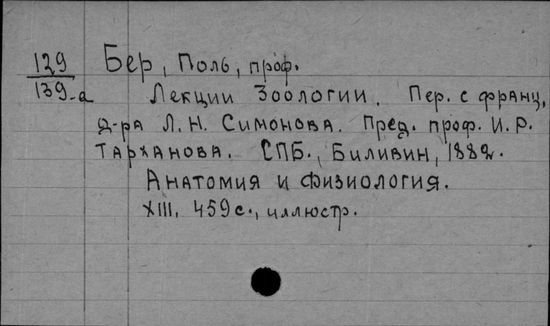 129 Бер, Поль, проф.
139-а Лекции Зоологии. Пер. с франц.
д-ра Л. Н. Симонова. Пред. проф. И. Р.
Тарханова. СПБ., Билибин, 1882.
Анатомия и Физиология.
XIII, 459 с., иллюстр.